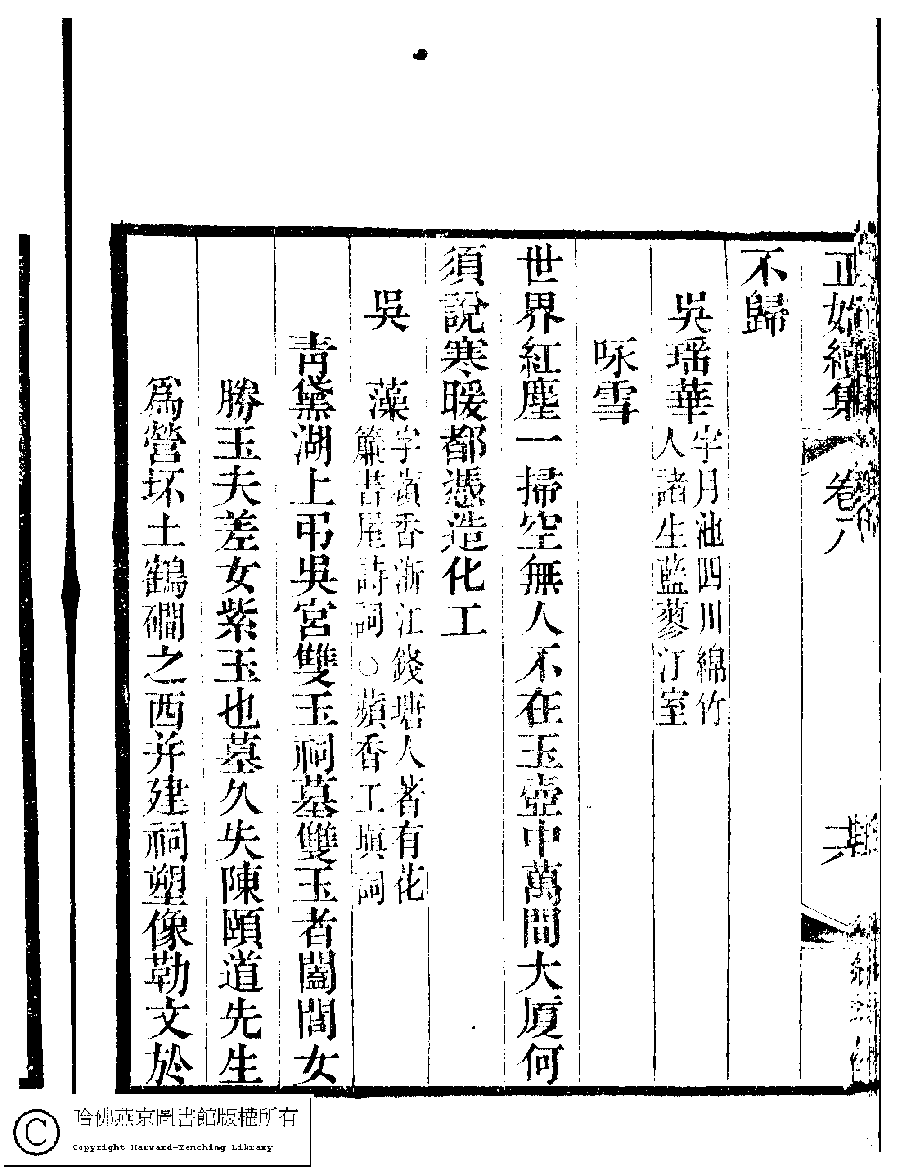 正始續集 卷八
不歸
吳瑶華 字月池四川綿竹
人諸生藍蓼汀室
咏雪
世界紅塵一掃空無人不在玉壺中萬間大厦何
須說寒暖都憑造化工
吳 藻 字蘋香浙江錢塘人著有花
簾書屋詩詞○蘋香工塡詞
青黛湖上弔吳宮雙玉祠墓雙玉者闔閭女
勝玉夫差女紫玉也墓久失陳頤道先生
爲營坏土鶴磵之西并建祠塑像勒文於
哈佛燕京圖書館版權所有
Copyright Harvard-Yenching Library